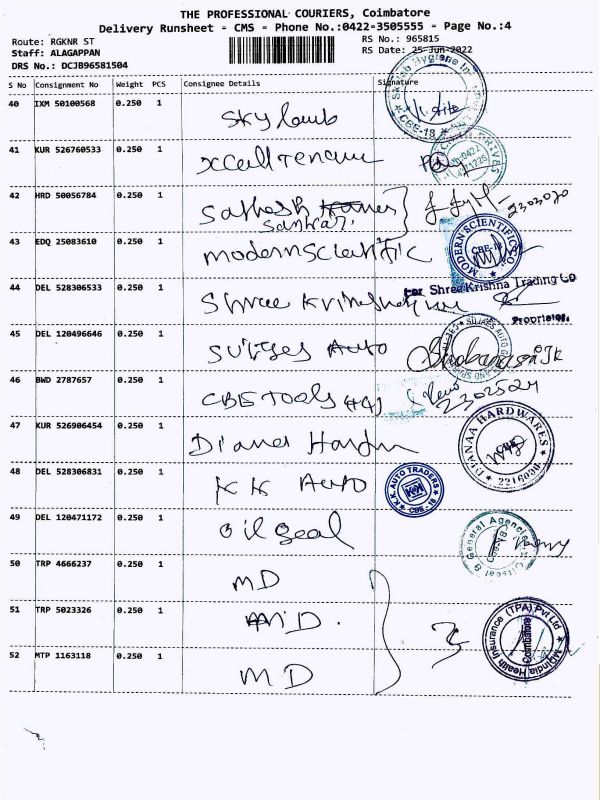 THE PROFESSIONAL COURIERS, Coimbatore
Delivery Runsheet - CMS - Phone No.:0422-3505555 - Page No.:4
Route: RGKNR ST
RS No.: 965815
Staff: ALAGAPPAN
RS Date: 25-Jun-2022
DRS No.: DCJB96581504
S No Consignment No Weight PCS Consignee Details Signature
40 IXM 50100568 0.250 1
41 KUR 526760533 0.250 1
42 HRD 50056784 0.250 1 Sathosh 2303020
Sankar
43 EDQ 25083610 0.250 1 modernscientific MODERN SCIENTIFIC CO CBE-18
44 DEL 528306533 0.250 1 Shree
For Shree Krishna Trading Co
Proprietor.
45 DEL 120496646 0.250 1 Auto
46 BWD 2787657 0.250 1 CBE Tools 2302524
47 KUR 526906454 0.250 1 Diana DIANAA HARDWARES CBE 2216030
48 DEL 528306831 0.250 1 KK Auto K.K. AUTO TRADERS KM CBE-18
49 DEL 120471172 0.250 1 Oil Seal General Agencies CBE-18
50 TRP 4666237 0.250 1 MD
51 TRP 5023326 0.250 1 MD.
52 MTP 1163118 0.250 1 MD MDIndia Health Insurance (TPA) Pvt Ltd Coimbatore